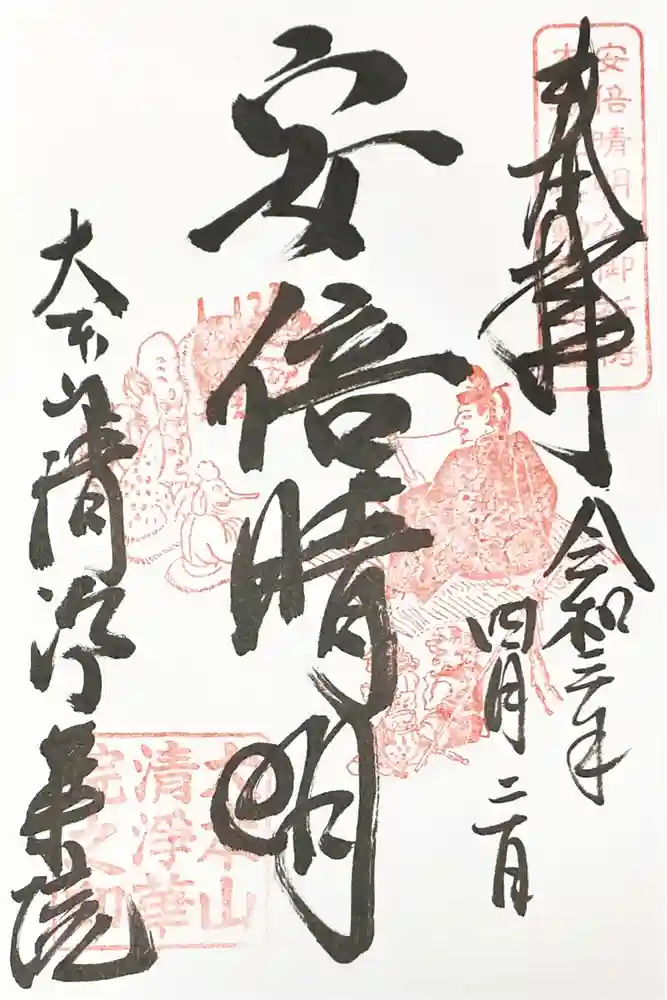 奉拝
令和三年
四月二日
安倍晴明
大本山清浄華院
安倍晴明公御
大本山
清淨華
院之印